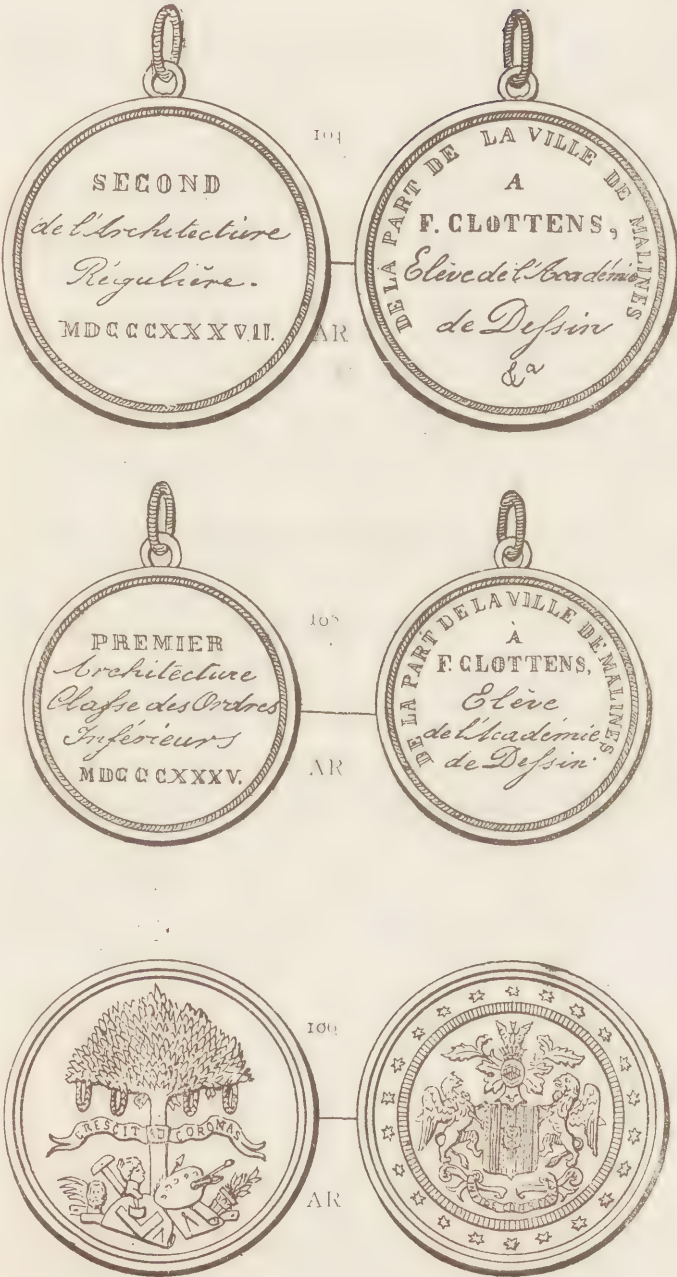 104
SECOND
de l'Architecture
Régulière.
MDCCCXXXVII.
AR
DE LA PART DE LA VILLE DE MALINES
A
F. CLOTTENS,
Elève de l'Académie
de Dessin
&a
105
PREMIER
Architecture
Classe des Ordres
Inférieurs
MDCCCXXXV.
AR
DE LA PART DE LA VILLE DE MALINES
À
F. CLOTTENS,
Elève
de l'Académie
de Dessin
106
CRESCIT AD CORONAS
AR